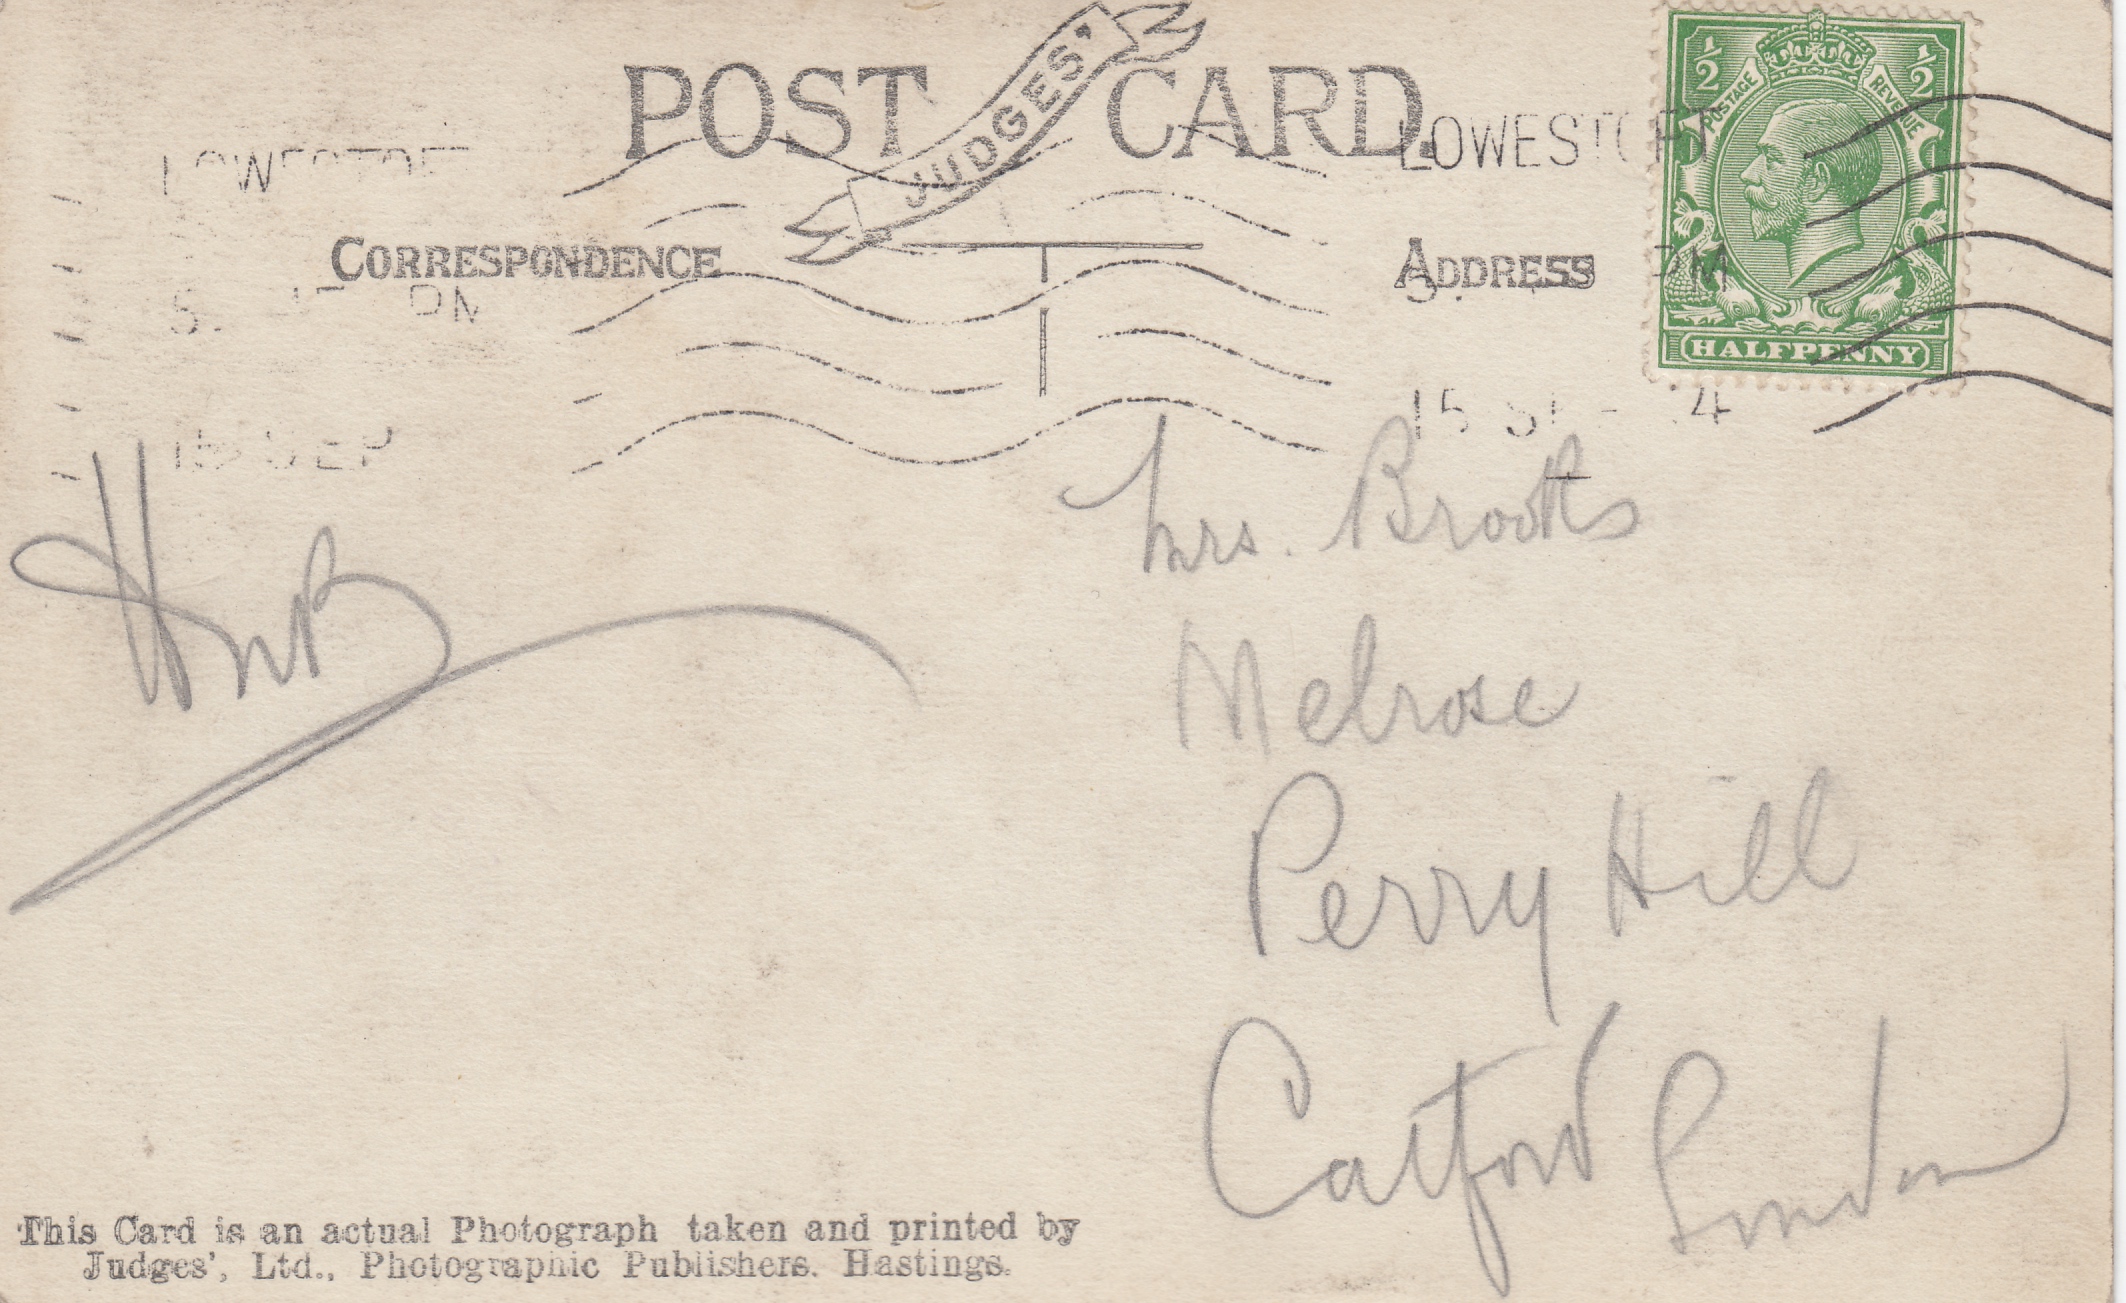 POST CARD.
JUDGES'
LOWESTOFT
CORRESPONDENCE
ADDRESS
PM
15 SEP
½ ½
POSTAGE REVENUE
HALFPENNY
LOWESTOFT
PM
15
HWB
Mrs. Brooks
Melrose
Perry Hill
Catford London
This Card is an actual Photograph taken and printed by
Judges', Ltd., Photographic Publishers. Hastings.